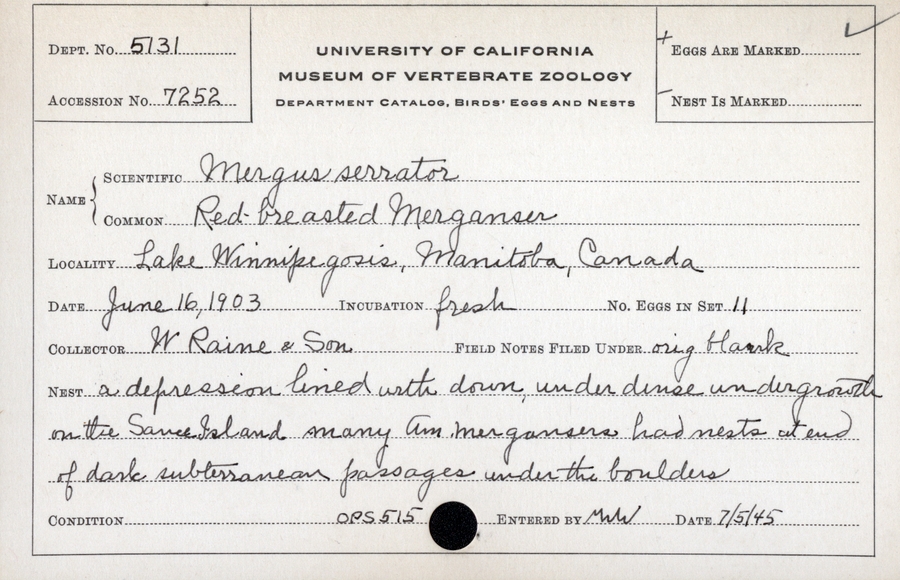 DEPT. NO. 5131
ACCESSION NO. 7252
UNIVERSITY OF CALIFORNIA
MUSEUM OF VERTEBRATE ZOOLOGY
DEPARTMENT CATALOG, BIRDS' EGGS AND NESTS
+ EGGS ARE MARKED ✓
- NEST IS MARKED
NAME { SCIENTIFIC Mergus serrator
COMMON Red-breasted Merganser
LOCALITY Lake Winnipegosis, Manitoba, Canada
DATE June 16, 1903 INCUBATION fresh NO. EGGS IN SET 11
COLLECTOR W Raine & Son FIELD NOTES FILED UNDER orig blank
NEST a depression lined with down, under dense undergrowth
on the Same Island many Am. mergansers had nests at end
of dark subterranean passages under the boulders
CONDITION OPS 515 ENTERED BY MWW DATE 7/5/45